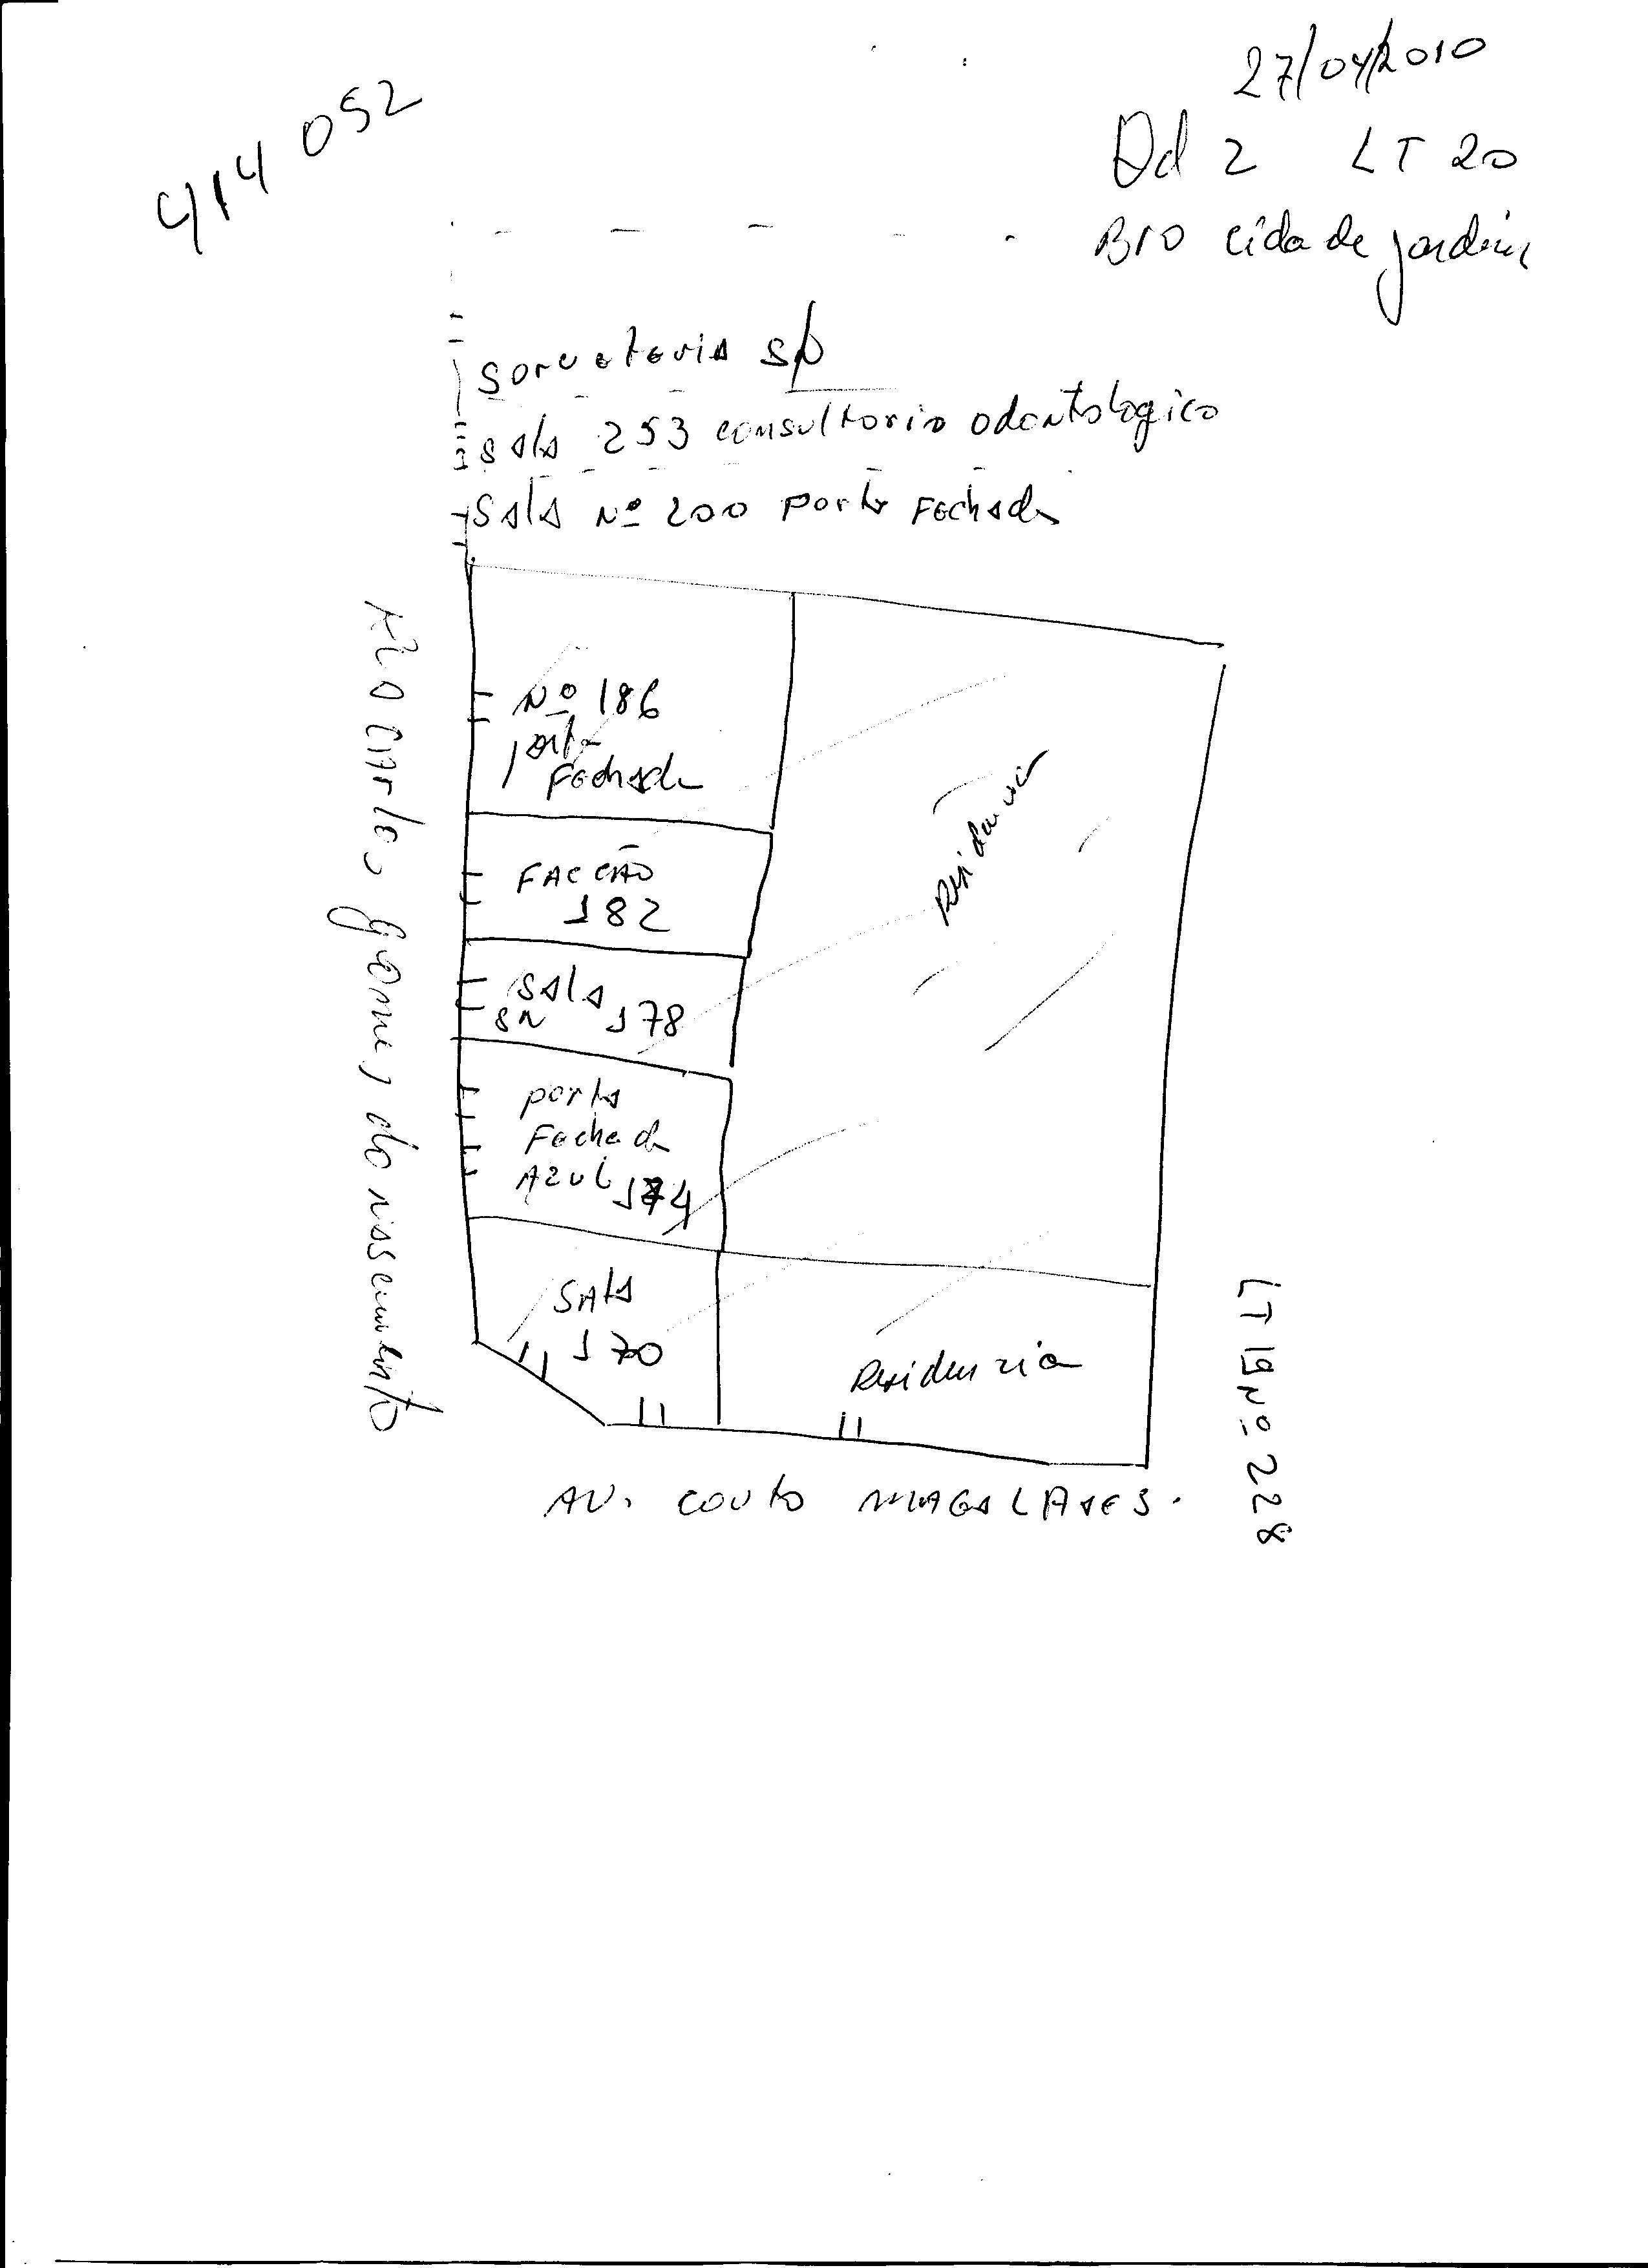 27/04/2010
414 052
Qd 2 LT 20
BRO cidade jardim
sorveteria
sala 253 consultorio odontologico
sala Nº 200 porta Fechada
Nº 186
porta
Fechada
Residencia
FACCÃO
182
sala
SN 178
porta
Fechada
AZUL 174
sala
170
Residencia
CARLOS gomes do nascimento
LT 19 Nº 228
AV. COUTO MAGALAES.